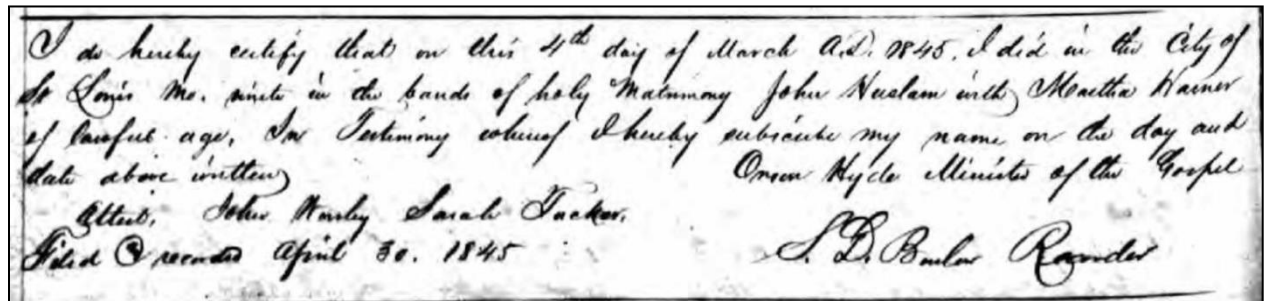 I do hereby certify that on this 4th day of March A.D. 1845. I did in the City of
St Louis Mo. unite in the bands of holy Matrimony John Haslam with Martha Warner
of lawful age, In Testimony whereof I hereby subscribe my name on the day and
date above written Orson Hyde Minister of the Gospel
Attest, John Sarah Tucker.
Filed & recorded April 30. 1845 S. D. Barlow Recorder